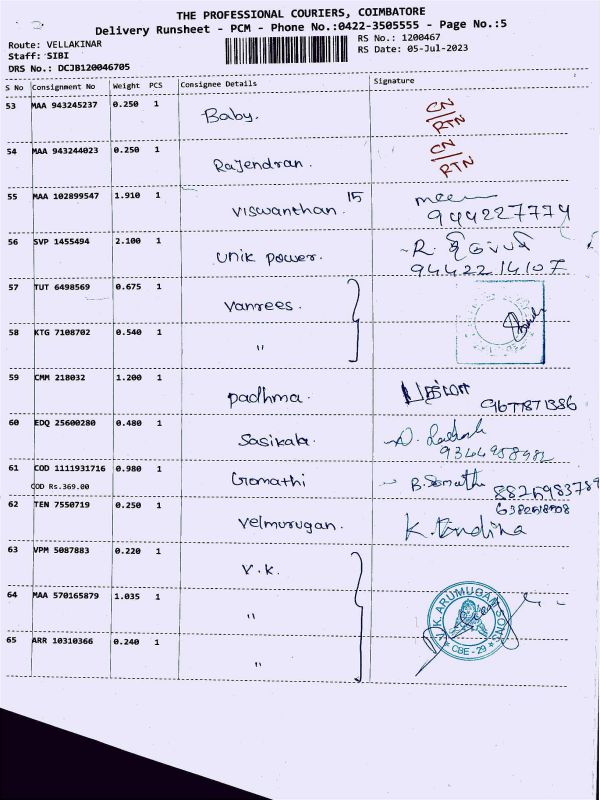 THE PROFESSIONAL COURIERS, COIMBATORE
Delivery Runsheet - PCM - Phone No.:0422-3505555 - Page No.:5
Route: VELLAKINAR
RS No.: 1200467
Staff: SIBI
RS Date: 05-Jul-2023
DRS No.: DCJB120046705
S No Consignment No Weight PCS Consignee Details Signature
53 MAA 943245237 0.250 1 Baby. CN/RTN
54 MAA 943244023 0.250 1 Rajendran. CN/RTN
55 MAA 102899547 1.910 1 Viswanthan. 15
944227774
56 SVP 1455494 2.100 1 Unik power. R.
9442214107
57 TUT 6498569 0.675 1 Vanrees.
58 KTG 7108702 0.540 1 "
59 CMM 218032 1.200 1 Padhma. பத்மா
9677871386
60 EDQ 25600280 0.480 1 Sasikala.
9344958982
61 COD 1111931716 0.980 1 Gomathi B.Gomathi
COD Rs.369.00
6382618908
62 TEN 7550719 0.250 1 Velmurugan.
63 VPM 5087883 0.220 1 V.K.
64 MAA 570165879 1.035 1 "
V.K. ARUMUGAM SONS
CBE-29
65 ARR 10310366 0.240 1 "